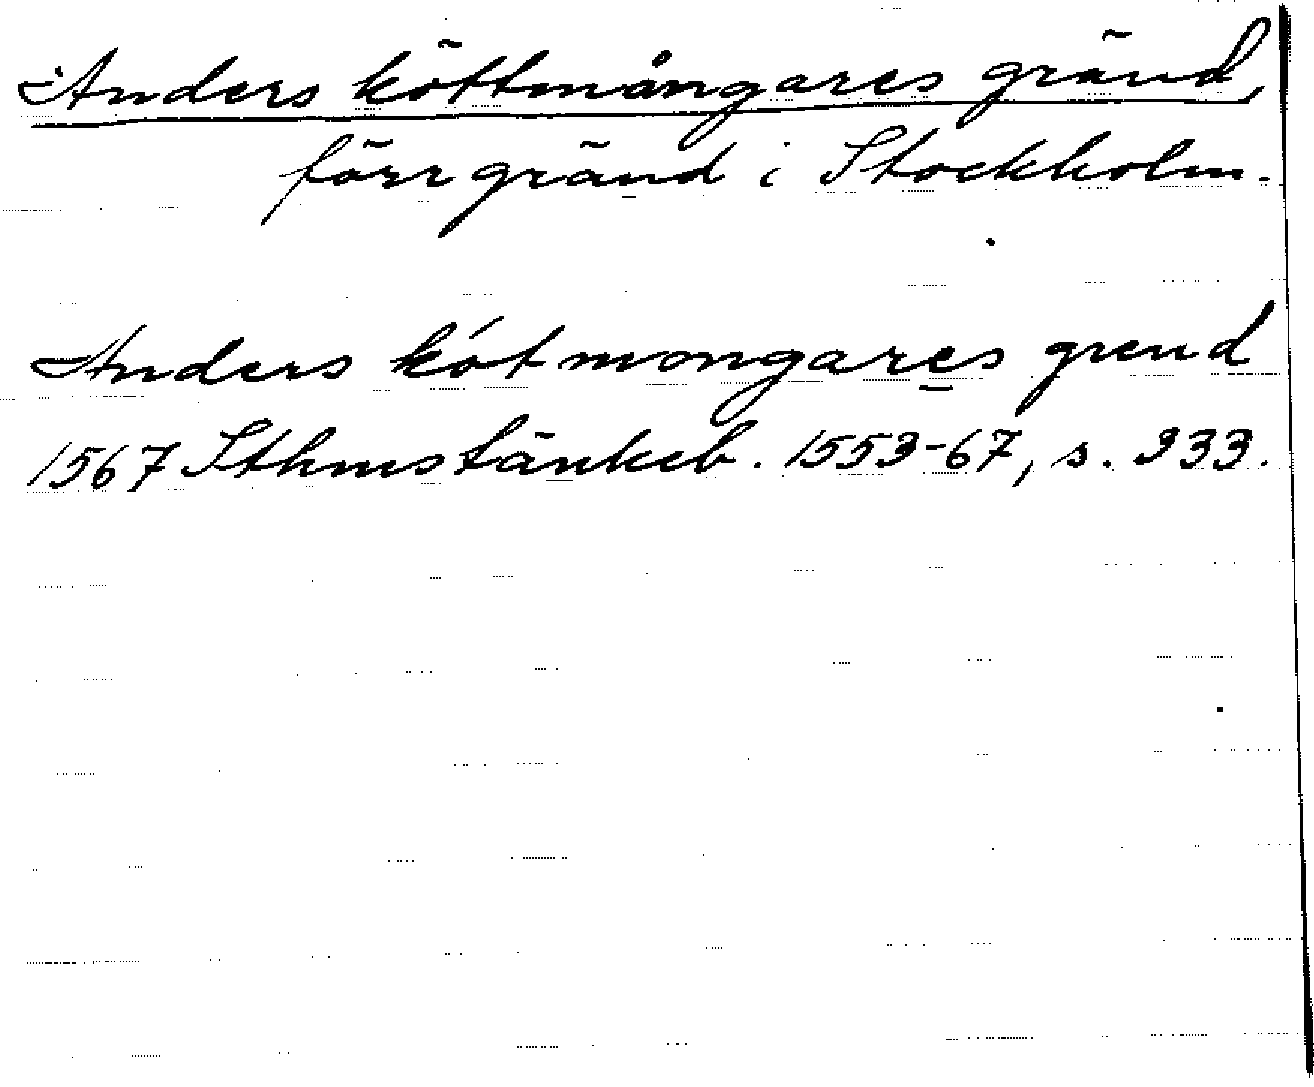 Anders köttmångares gränd,
förr gränd i Stockholm.
Anders kót mongares grend
1567 Sthms tänkeb. 1553-67, s. 333.